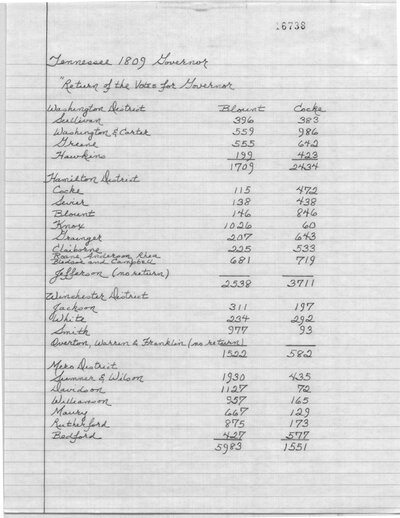 16738
Tennessee 1809 Governor
"Return of the Votes for Governor
Washington District Blount Cocke
Sullivan 396 383
Washington & Carter 559 986
Greene 555 642
Hawkins 199 423
1709 2434
Hamilton District
Cocke 115 472
Sevier 138 438
Blount 146 846
Knox 1026 60
Grainger 207 643
Claiborne 225 533
Roane Anderson Rhea
Bledsoe and Campbell 681 719
Jefferson (no return)
2538 3711
Winchester District
Jackson 311 197
White 234 292
Smith 977 93
Overton, Warren & Franklin (no return)
1522 582
Mero District
Sumner & Wilson 1930 435
Davidson 1127 72
Williamson 957 165
Maury 667 129
Rutherford 875 173
Bedford 427 577
5983 1551